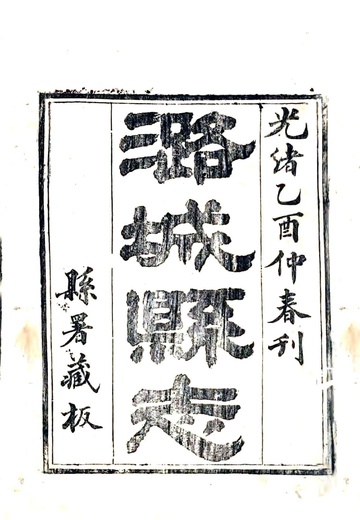 光緒乙酉仲春刊
潞城縣志
縣署藏板